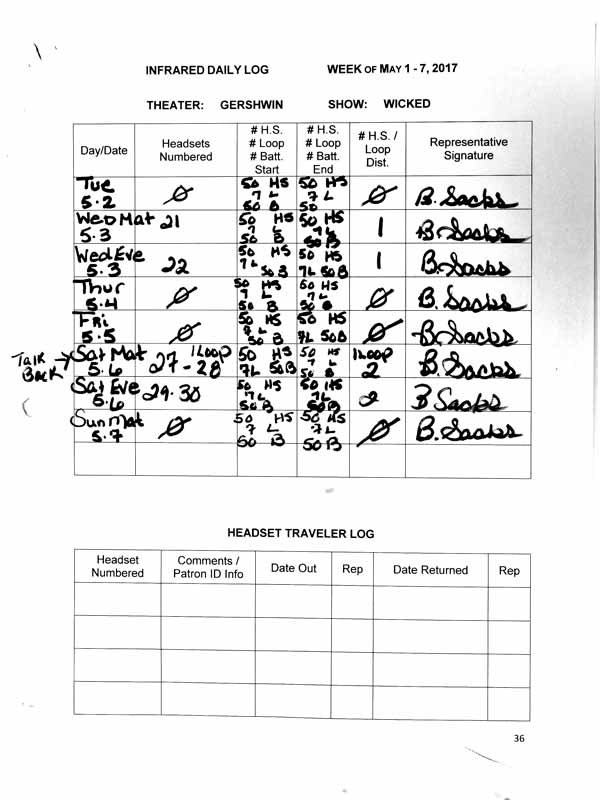 INFRARED DAILY LOG WEEK OF MAY 1 - 7, 2017
THEATER: GERSHWIN SHOW: WICKED
Day/Date
Headsets
Numbered
# H.S.
# Loop
# Batt.
Start
# H.S.
# Loop
# Batt.
End
# H.S. /
Loop
Dist.
Representative
Signature
Tue
5.2
Ø
50 HS
7 L
50 B
50 HS
7 L
50
Ø
B. Sacks
Wed Mat
5.3
21
50 HS
7 L
50 B
50 HS
7 L
50 B
1
B. Sacks
Wed Eve
5.3
22
50 HS
7L 50B
50 HS
7L 50B
1
B. Sacks
Thur
5.4
Ø
50 HS
7 L
50 B
50 HS
7 L
50 B
Ø
B. Sacks
Fri
5.5
Ø
50 HS
7 L
50 B
50 HS
7L 50B
Ø
B. Sacks
Talk
Back
Sat Mat
5.6
1Loop
27-28
50 HS
7L 50B
50 HS
7 L
50 B
1Loop
2
B. Sacks
Sat Eve
5.6
29.30
50 HS
7L
50B
50 HS
7L
50B
2
B Sacks
Sun Mat
5.7
Ø
50 HS
7 L
50 B
50 HS
7L
50B
Ø
B. Sacks
HEADSET TRAVELER LOG
Headset
Numbered
Comments /
Patron ID Info
Date Out
Rep
Date Returned
Rep
36